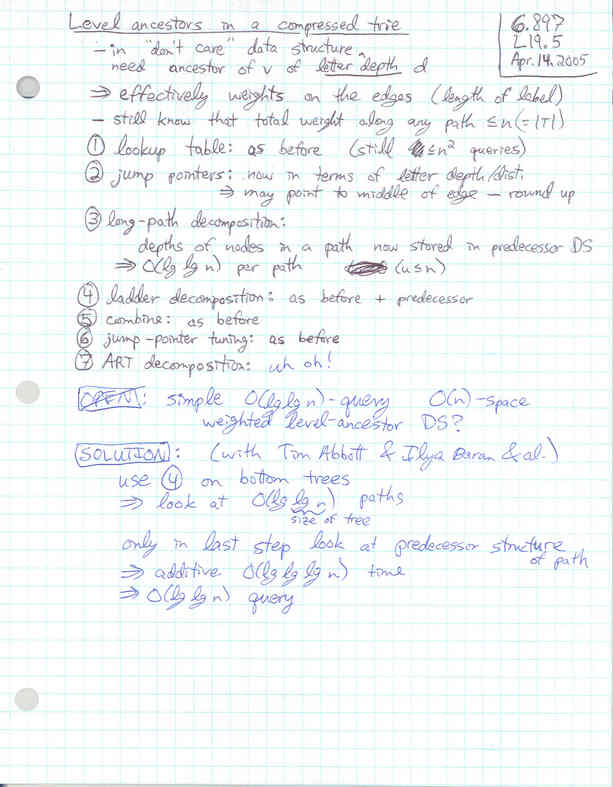 Level ancestors in a compressed trie
6.897
L19.5
Apr. 14, 2005
- in "don't care" data structure,
need ancestor of v of letter depth d
⇒ effectively weights on the edges (length of label)
- still know that total weight along any path ≤ n (= |T|)
① lookup table: as before (still ≤ n² queries)
② jump pointers: now in terms of letter depth/dist.
⇒ may point to middle of edge – round up
③ long-path decomposition:
depths of nodes in a path now stored in predecessor DS
⇒ O(lg lg n) per path (u ≤ n)
④ ladder decomposition: as before + predecessor
⑤ combine: as before
⑥ jump-pointer tuning: as before
⑦ ART decomposition: uh oh!
OPEN: simple O(lg lg n)-query O(n)-space
weighted level-ancestor DS?
SOLUTION: (with Tim Abbott & Ilya Baran & al.)
use ④ on bottom trees
⇒ look at O(lg lg n) paths
size of tree
only in last step look at predecessor structure
of path
⇒ additive O(lg lg lg n) time
⇒ O(lg lg n) query